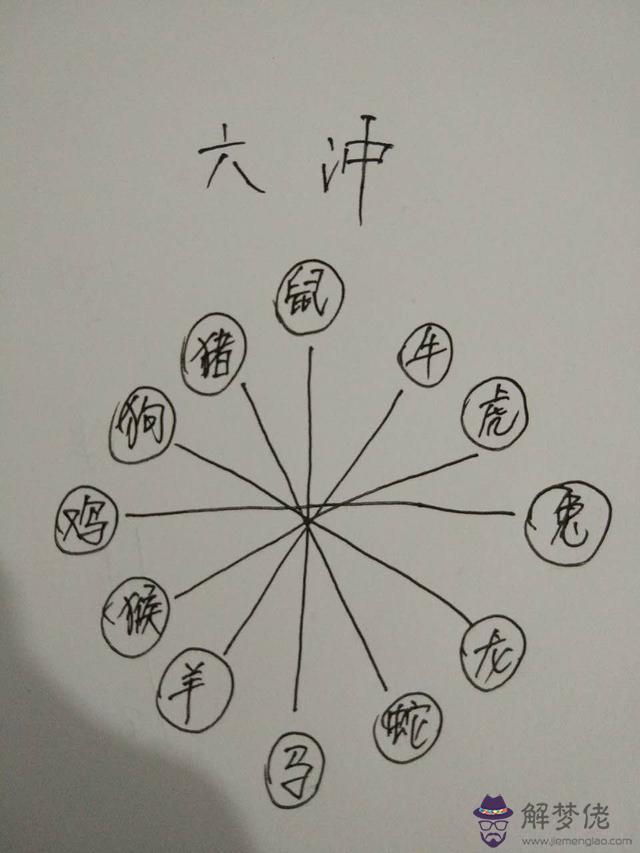 六冲
鼠
猪
牛
狗
虎
鸡
兔
猴
龙
羊
蛇
马
解梦佬
www.jiemenglao.com